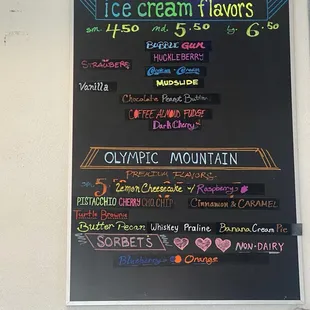 ice cream flavors
sm. 4.50 md. 5.50 lg. 6.50
BUBBLE GUM
HUCKLEBERRY
STRAWBERRY
Cookies Cream
Vanilla MUDSLIDE
Chocolate Peanut Butter
COFFEE ALMOND FUDGE
Dark Cherry
OLYMPIC MOUNTAIN
PREMIUM FLAVORS
sm. 5
Lemon Cheesecake w/ Raspberry
PISTACCHIO CHERRY CHO. CHIP Cinnamon & CARAMEL
Turtle Brownie
Butter Pecan Whiskey Praline Banana Cream Pie
SORBETS NON-DAIRY
Blueberry Orange